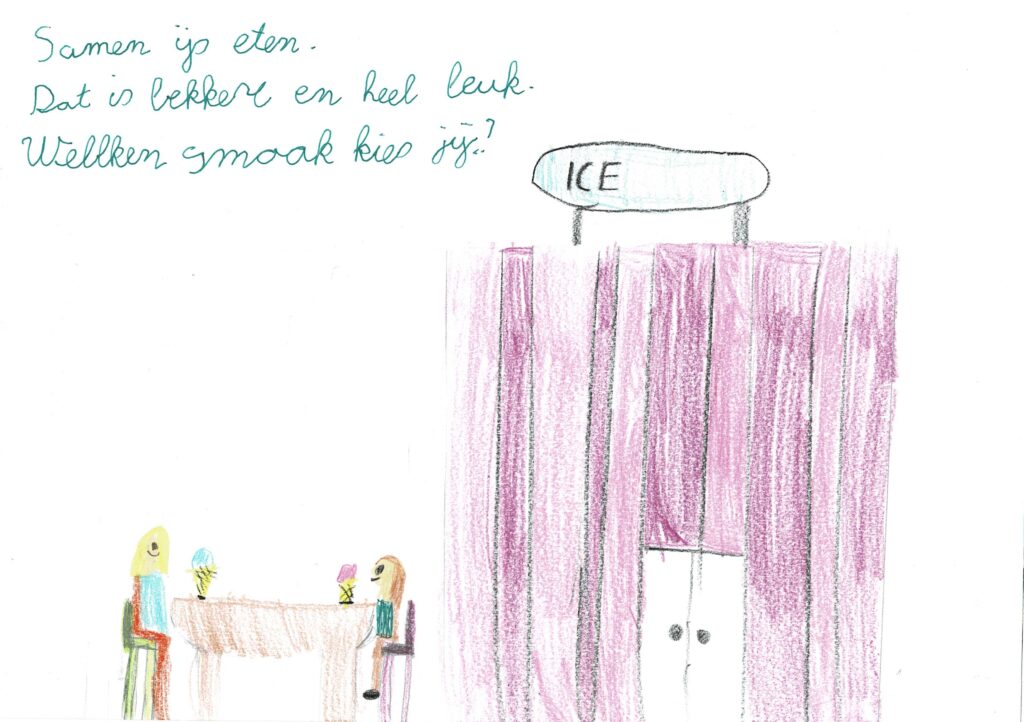 Samen ijs eten.
Dat is lekker en heel leuk.
Wellken smaak kies jij?
ICE